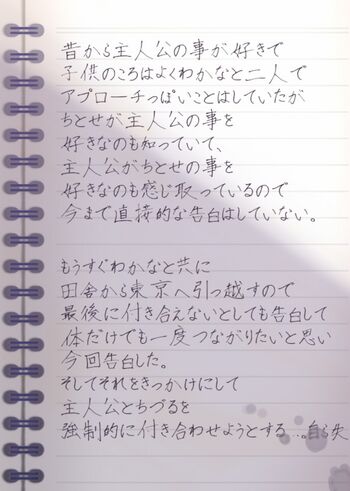 昔から主人公の事が好きで
子供のころはよくわかなと二人で
アプローチっぽいことはしていたが
ちとせが主人公の事を
好きなのも知っていて、
主人公がちとせの事を
好きなのも感じ取っているので
今まで直接的な告白はしていない。
もうすぐわかなと共に
田舎から東京へ引っ越すので
最後に付き合えないとしても告白して
体だけでも一度つながりたいと思い
今回告白した。
そしてそれをきっかけにして
主人公とちづるを
強制的に付き合わせようとする…。自ら失